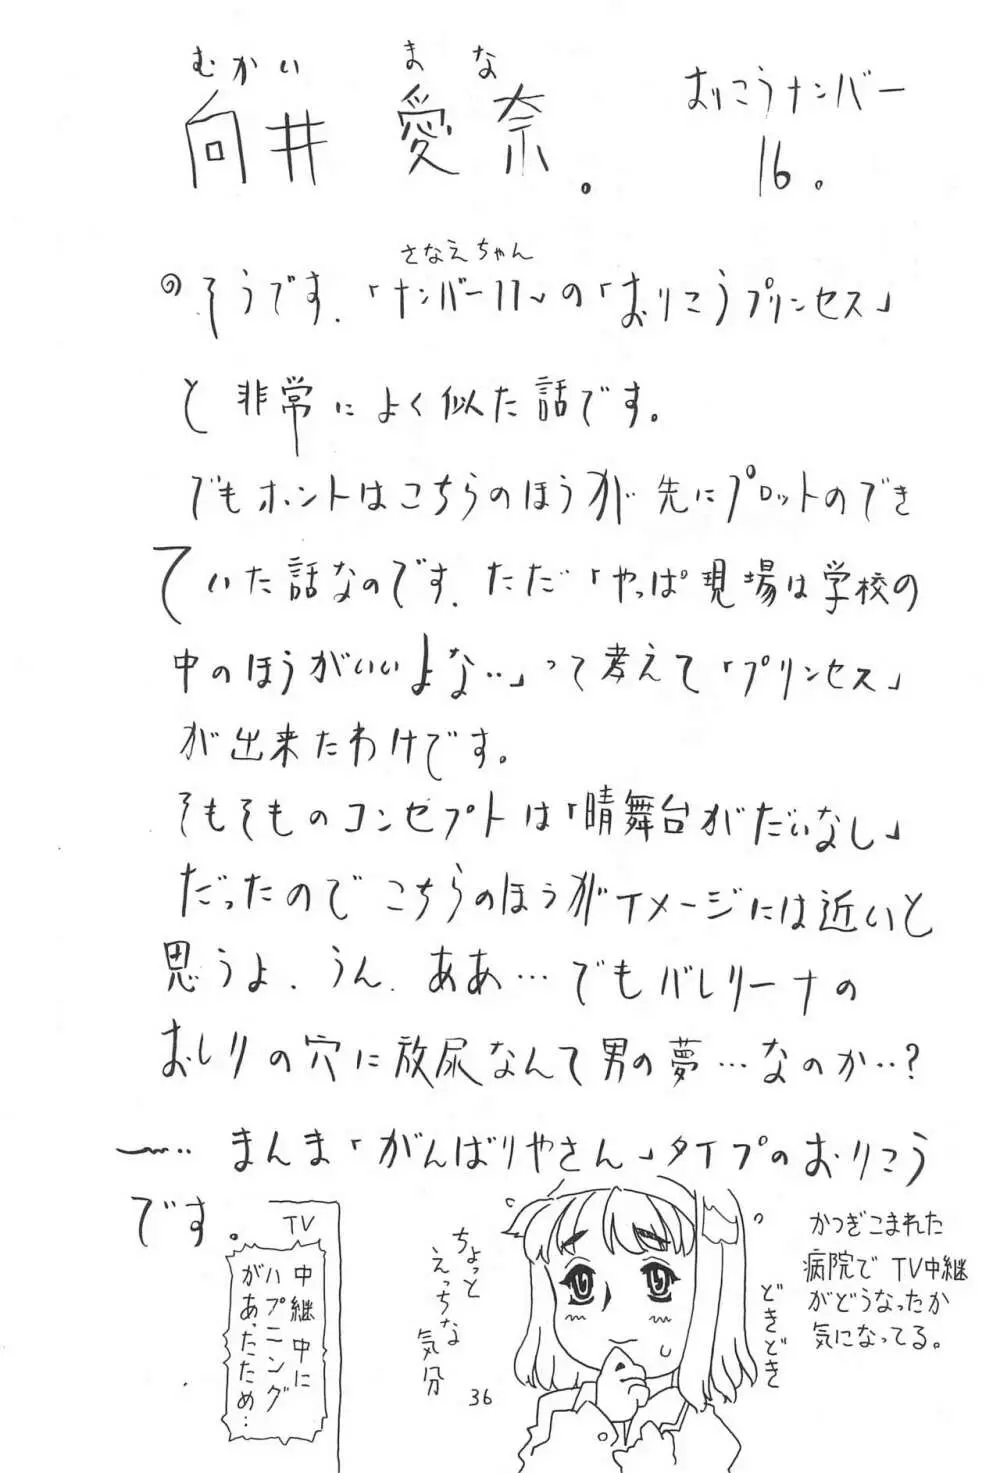 むかい まな
向井 愛奈。
おりこうナンバー
16。
さなえちゃん
そうです.「ナンバー11」の「おりこうプリンセス」
と非常によく似た話です。
でもホントはこちらのほうが先にプロットのでき
ていた話なのです.ただ「やっぱ現場は学校の
中のほうがいいよな‥」って考えて「プリンセス」
が出来たわけです。
そもそものコンセプトは「晴舞台がだいなし」
だったのでこちらのほうがイメージには近いと
思うよ.うん.ああ…でもバレリーナの
おしりの穴に放尿なんて男の夢…なのか‥?
まんま「がんばりやさん」タイプのおりこう
です。
TV
中継中に
ハプニング
があったため…
ちょっと
えっちな
気分
どきどき
かつぎこまれた
病院でTV中継
がどうなったか
気になってる。
36